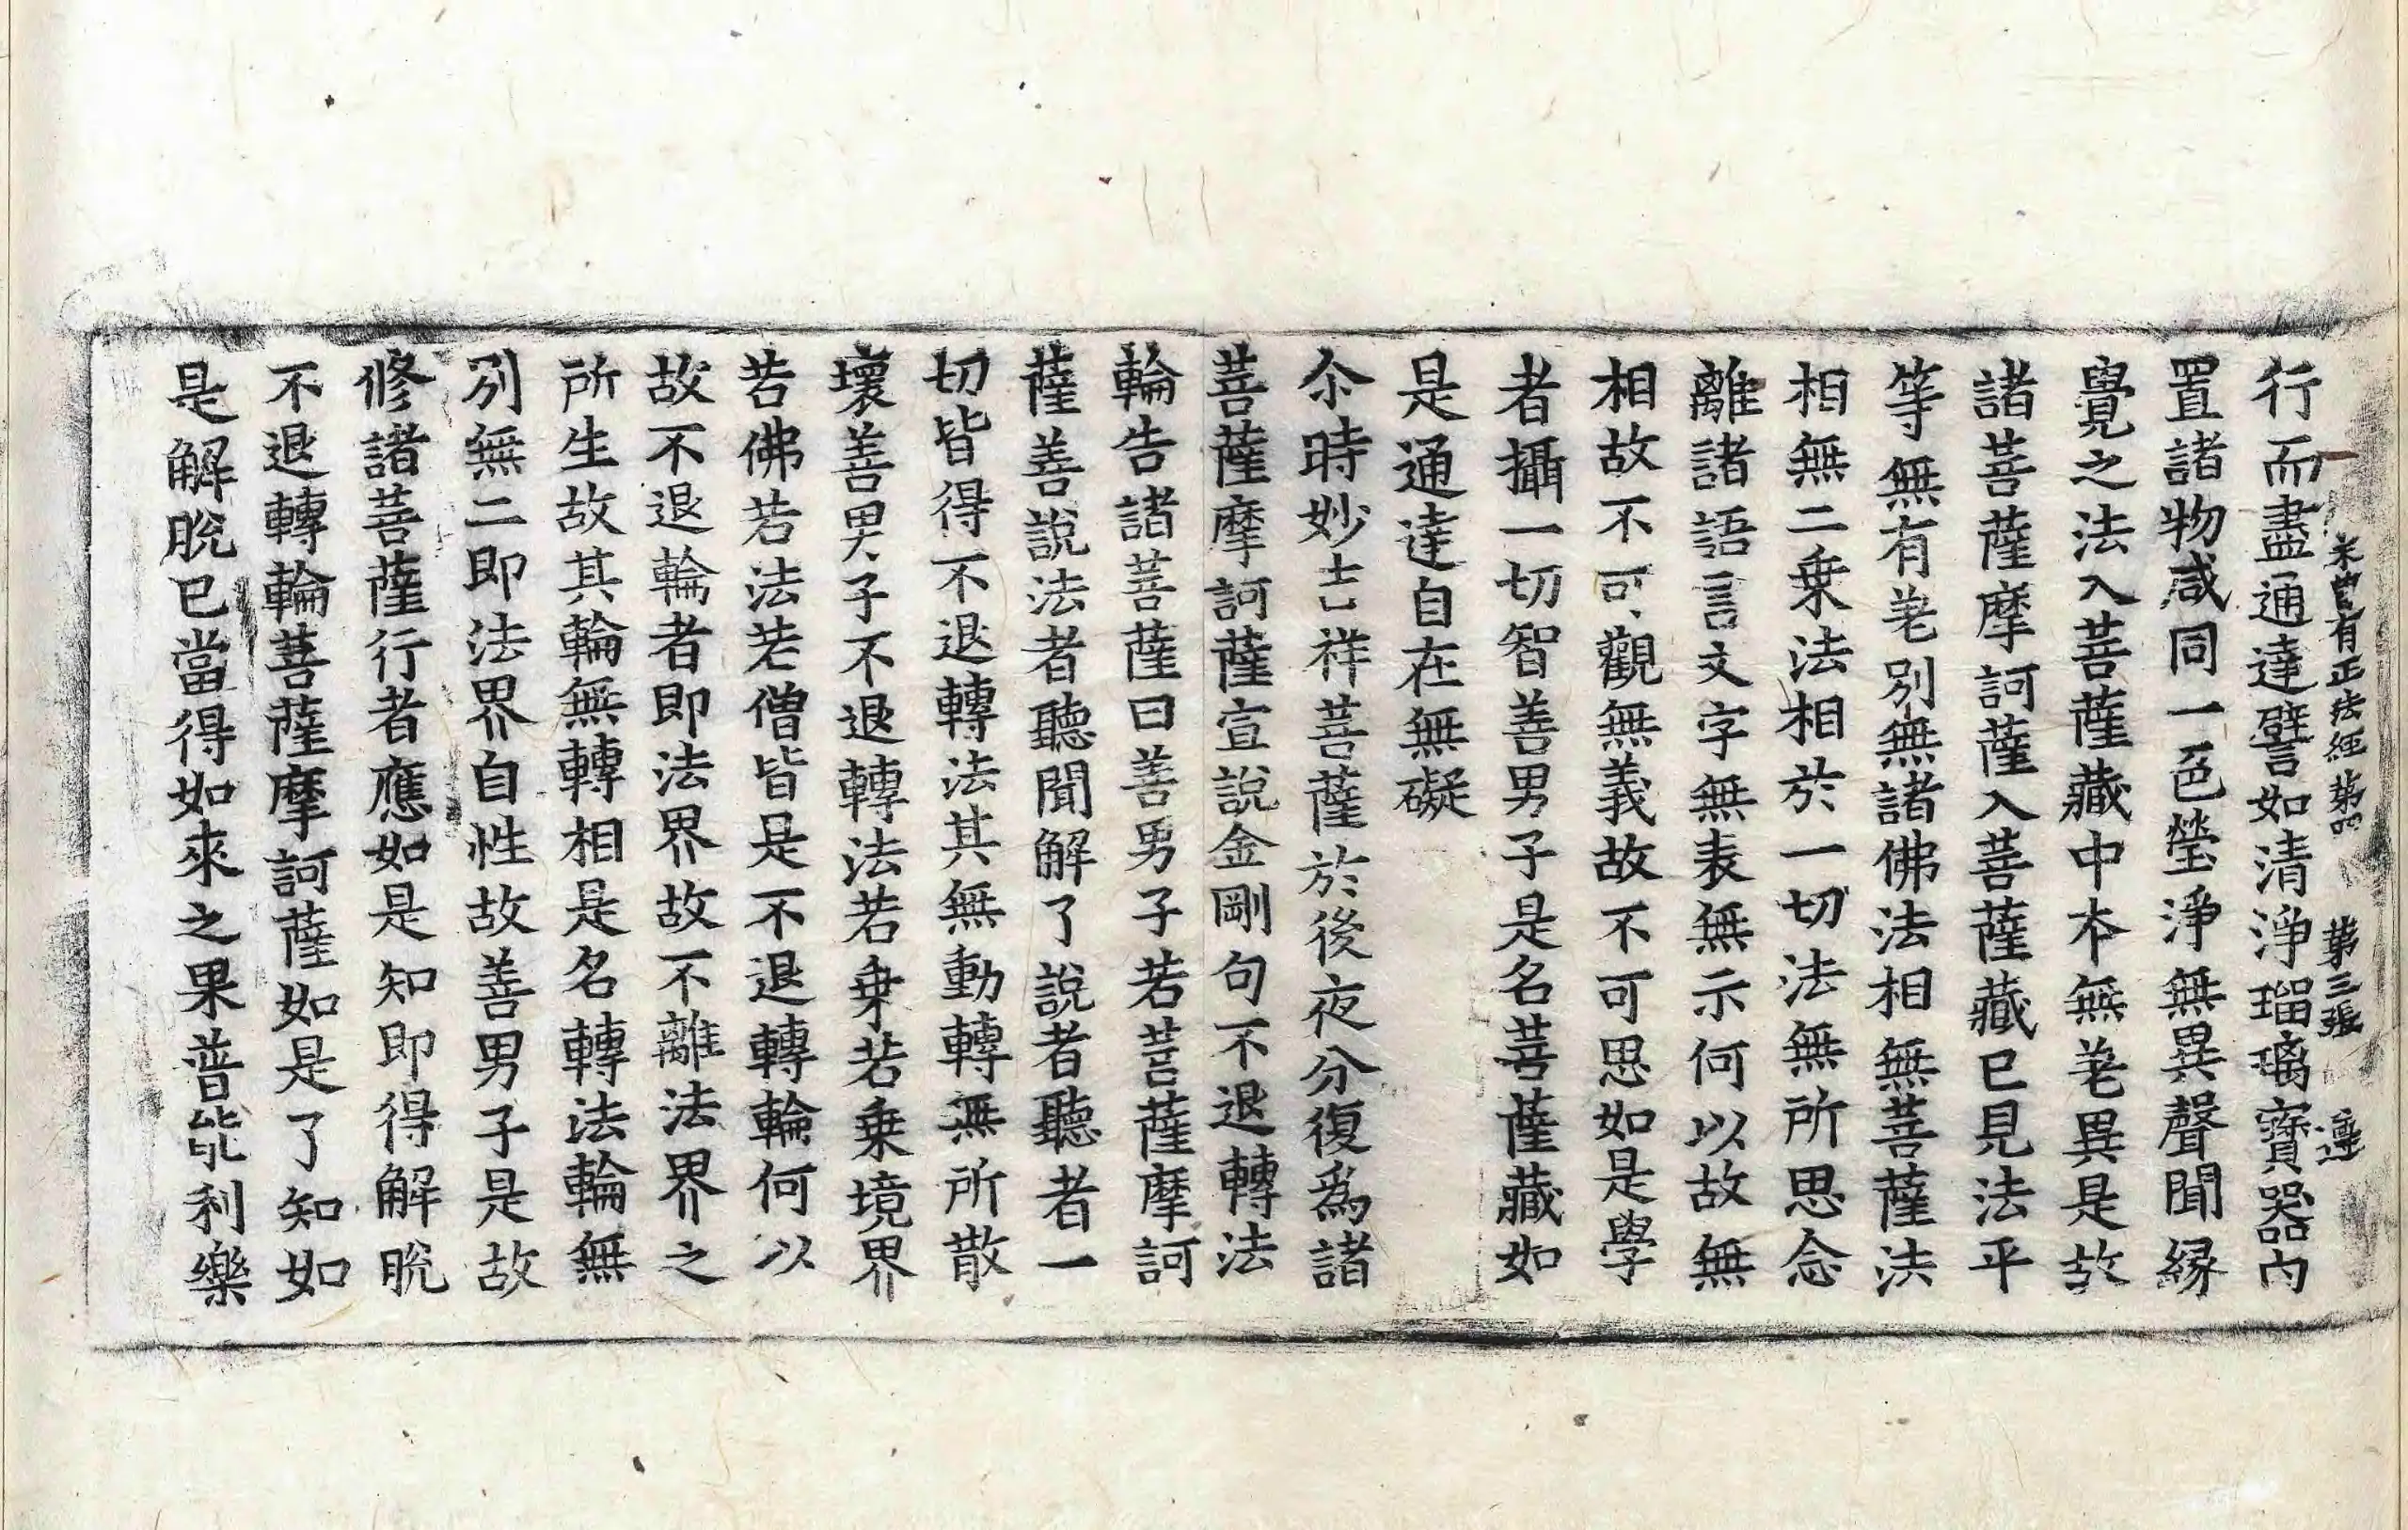 未曾有正法經第四 第三張 運
行而盡通達譬如清淨瑠璃寶器內
置諸物咸同一色瑩淨無異聲聞緣
覺之法入菩薩藏中本無差異是故
諸菩薩摩訶薩入菩薩藏已見法平
等無有差別無諸佛法相無菩薩法
相無二乗法相於一切法無所思念
離諸語言文字無表無示何以故無
相故不可觀無義故不可思如是學
者攝一切智善男子是名菩薩藏如
是通達自在無礙
尒時妙吉祥菩薩於後夜分復爲諸
菩薩摩訶薩宣說金剛句不退轉法
輪告諸菩薩曰善男子若菩薩摩訶
薩善說法者聽聞解了說者聽者一
切皆得不退轉法其無動轉無所散
壞善男子不退轉法若乗若乗境界
若佛若法若僧皆是不退轉輪何以
故不退輪者即法界故不離法界之
所生故其輪無轉相是名轉法輪無
別無二即法界自性故善男子是故
修諸菩薩行者應如是知即得解脫
不退轉輪菩薩摩訶薩如是了知如
是解脫已當得如來之果普能利樂